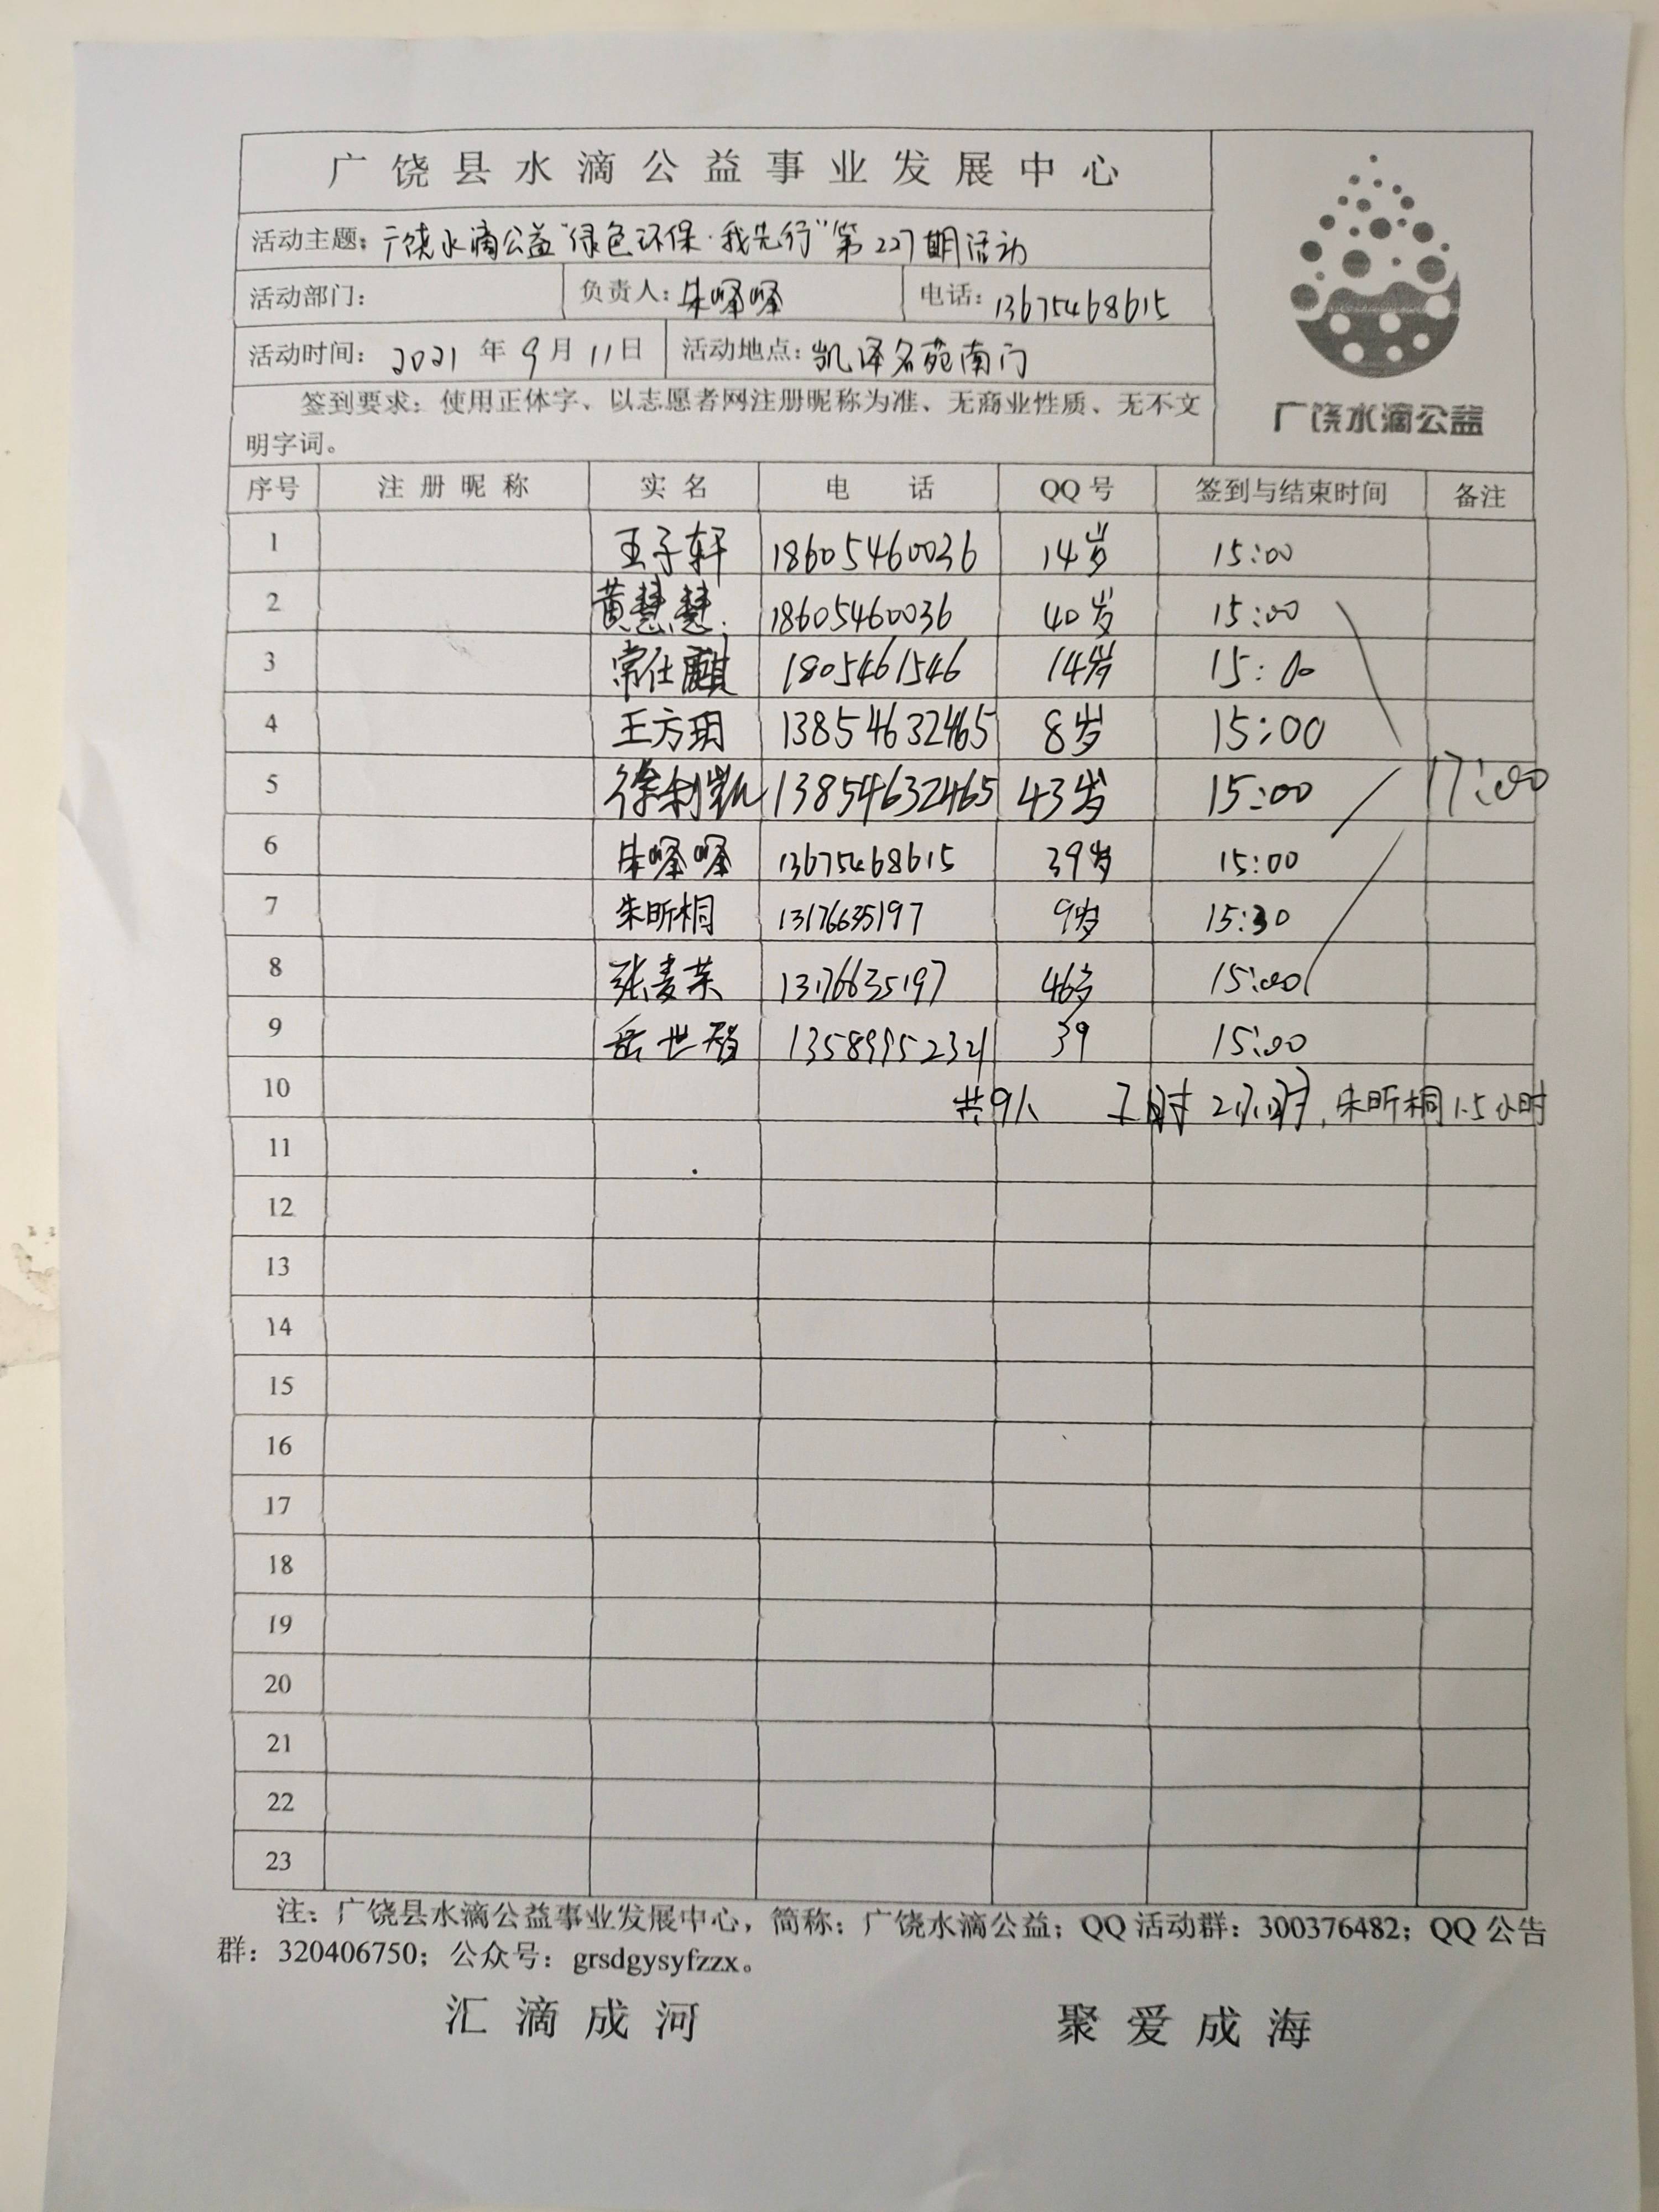 广饶县水滴公益事业发展中心
活动主题：广饶水滴公益“绿色环保·我先行”第227期活动
活动部门： 负责人：朱峰峰 电话：13675468615
活动时间：2021年9月11日 活动地点：凯泽名苑南门
签到要求：使用正体字、以志愿者网注册昵称为准、无商业性质、无不文
明字词。
广饶水滴公益
序号 注册昵称 实名 电话 QQ号 签到与结束时间 备注
1 王子轩 18605460036 14岁 15:00
2 黄慧慧 18605460036 40岁 15:00
3 常仕麒 1805461546 14岁 15:00
4 王方玥 13854632465 8岁 15:00
5 徐利凯 13854632465 43岁 15:00 17:00
6 朱峰峰 13675468615 39岁 15:00
7 朱昕桐 13176635197 9岁 15:30
8 张麦荣 13176635197 46岁 15:00
9 岳世智 13589952321 39 15:00
10 共9人 工时2小时，朱昕桐1.5小时
11
12
13
14
15
16
17
18
19
20
21
22
23
注：广饶县水滴公益事业发展中心，简称：广饶水滴公益；QQ活动群：300376482；QQ公告
群：320406750；公众号：grsdgysyfzzx。
汇滴成河 聚爱成海